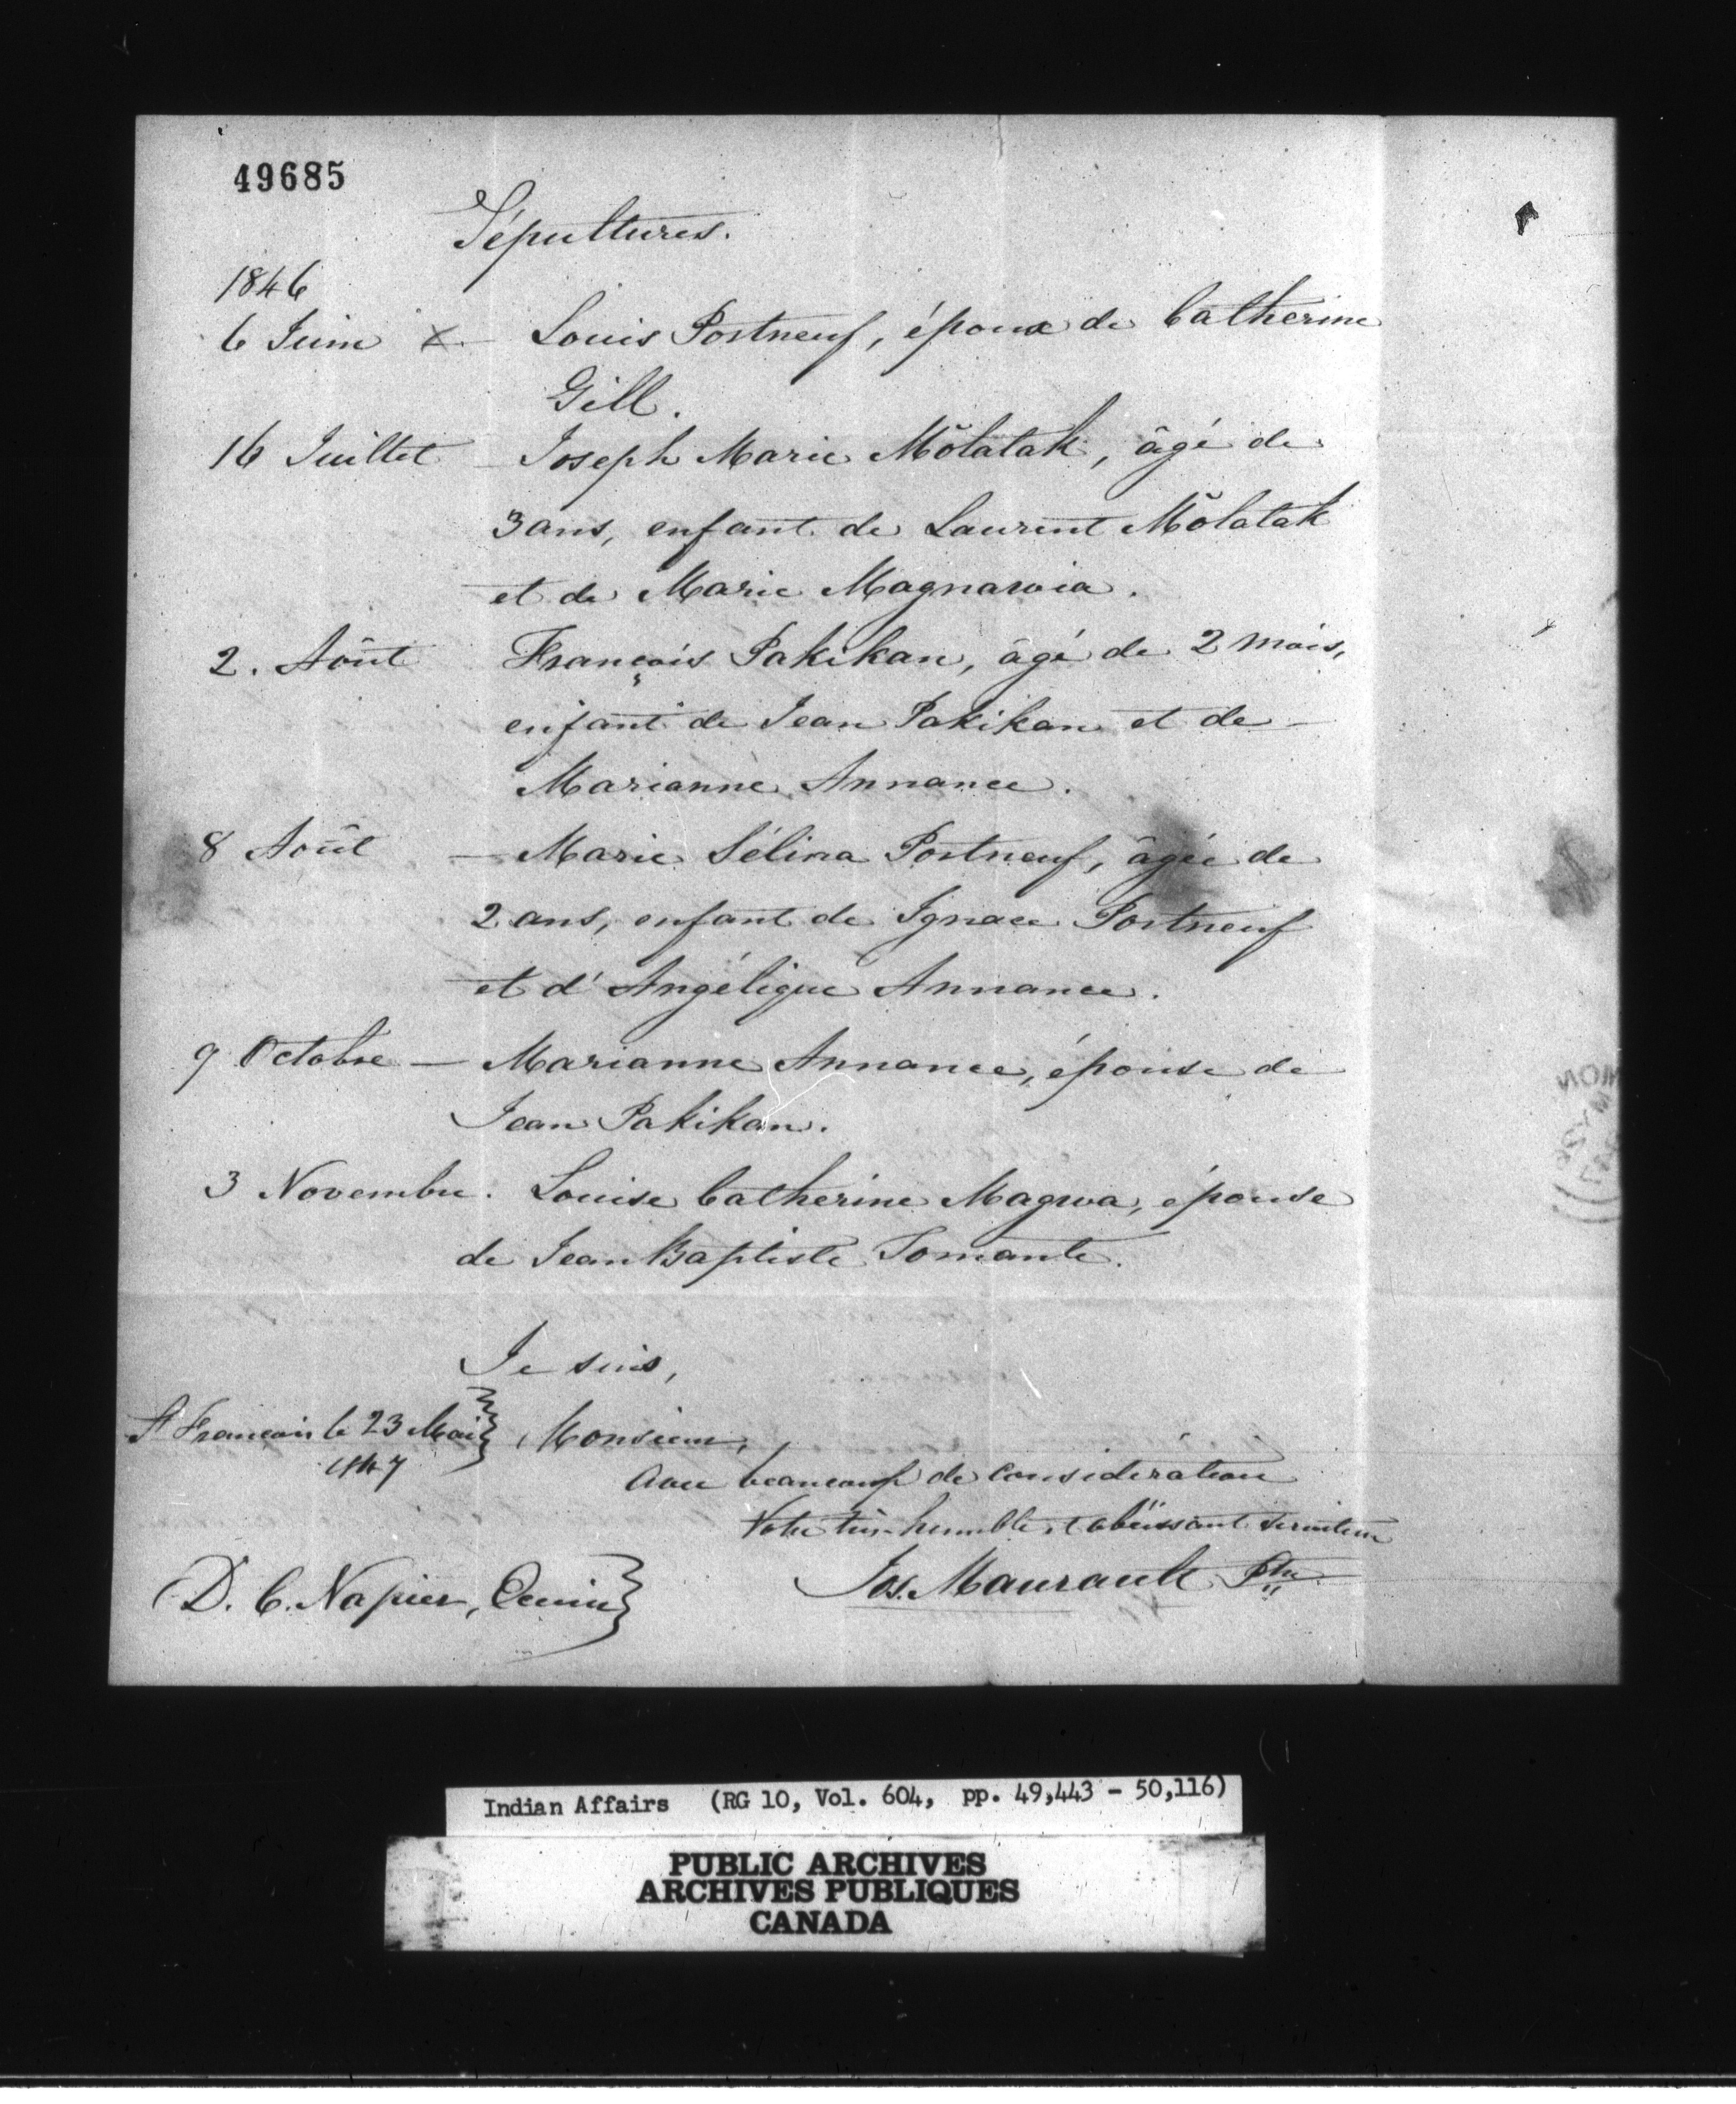 49685
Sépultures.
1846
6 Juin x – Louis Portneuf, époux de Catherine
Gill.
16 Juillet – Joseph Marie Môlatak, âgé de
3 ans, enfant de Laurent Môlatak
et de Marie Magnawia.
2. Août François Pakikan, âgé de 2 mois,
enfant de Jean Pakikan et de –
Marianne Annance.
8 Août – Marie Sélina Portneuf, âgée de
2 ans, enfant de Ignace Portneuf
et d'Angélique Annance.
9 Octobre – Marianne Annance, épouse de
Jean Pakikan.
3 Novembre. Louise Catherine Magwa, épouse
de Jean Baptiste Tomante.
Je suis,
St François le 23 Mai Monsieur,
1847
Avec beaucoup de Considération
Votre très humble et obéissant serviteur
D. C. Napier, Jos. Maurault Ptre
Indian Affairs (RG 10, Vol. 604, pp. 49,443 - 50,116)
PUBLIC ARCHIVES
ARCHIVES PUBLIQUES
CANADA